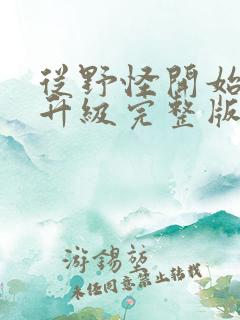 從野怪開始
升級完整版
游錫堃
未任同意禁止转载